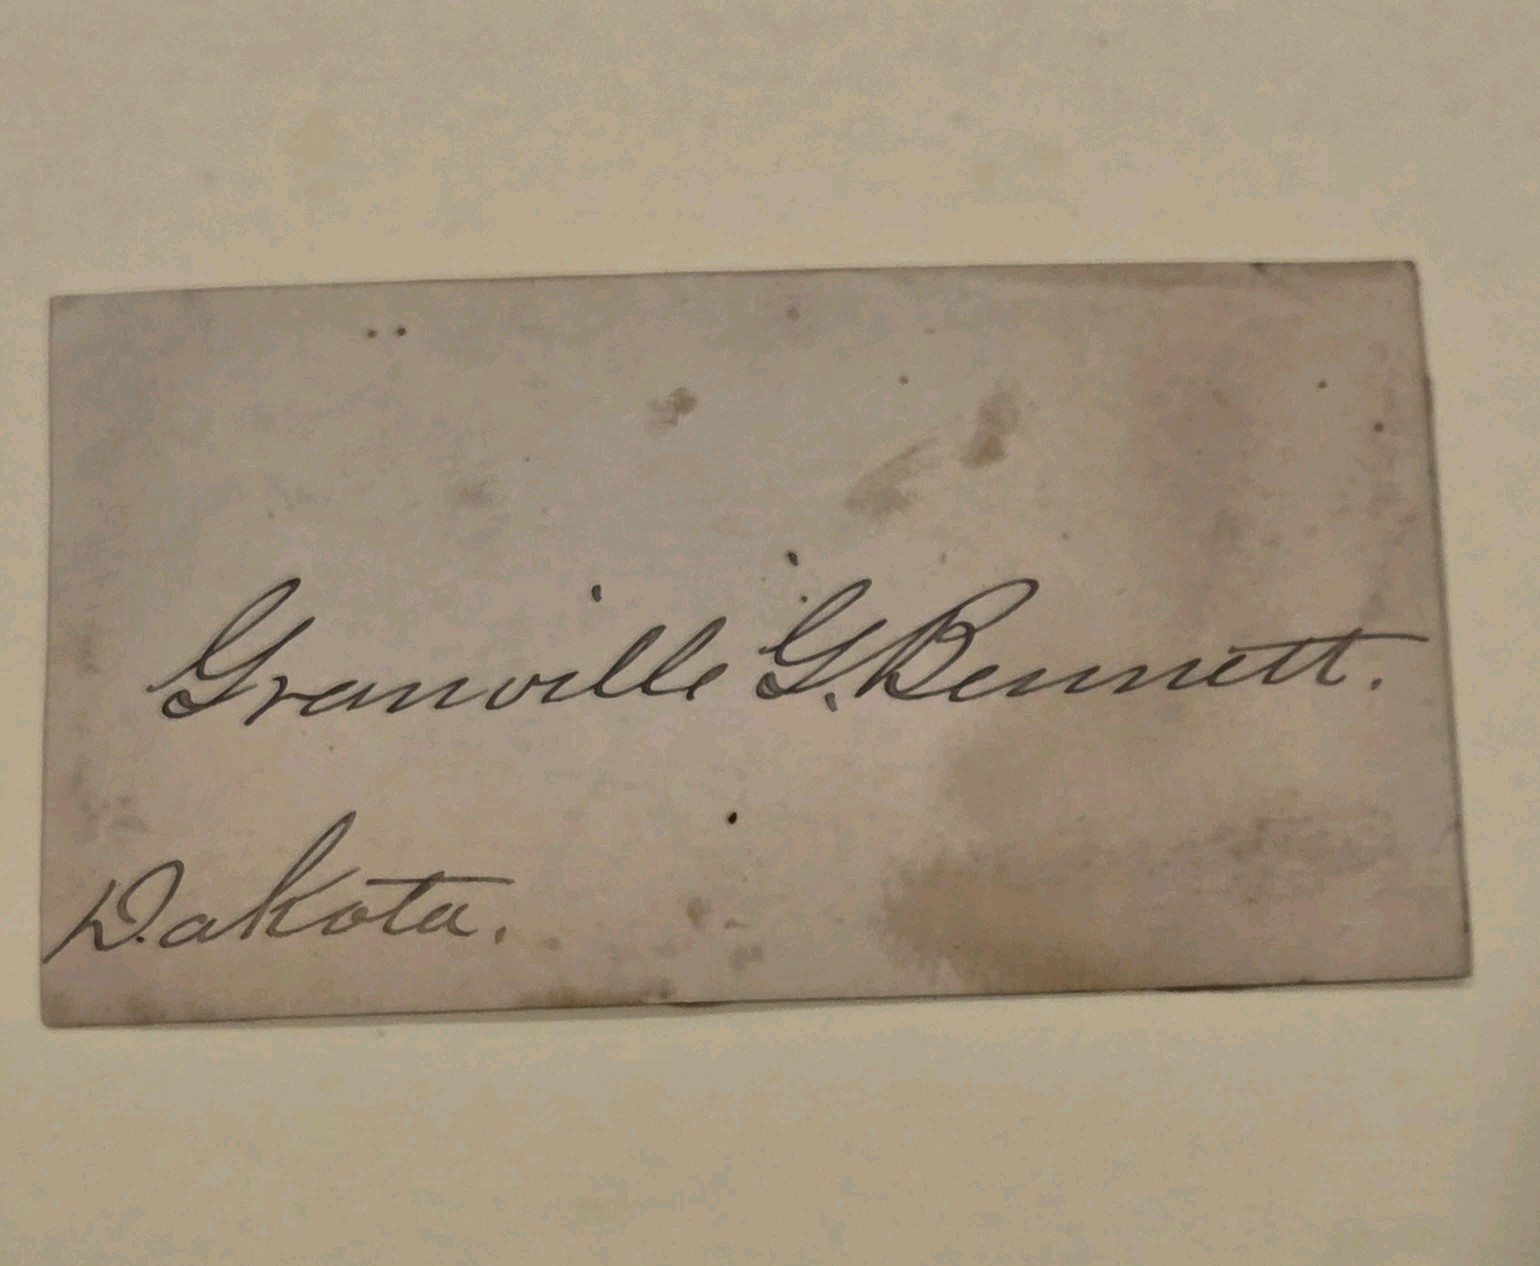 Granville G. Bennett.
Dakota.